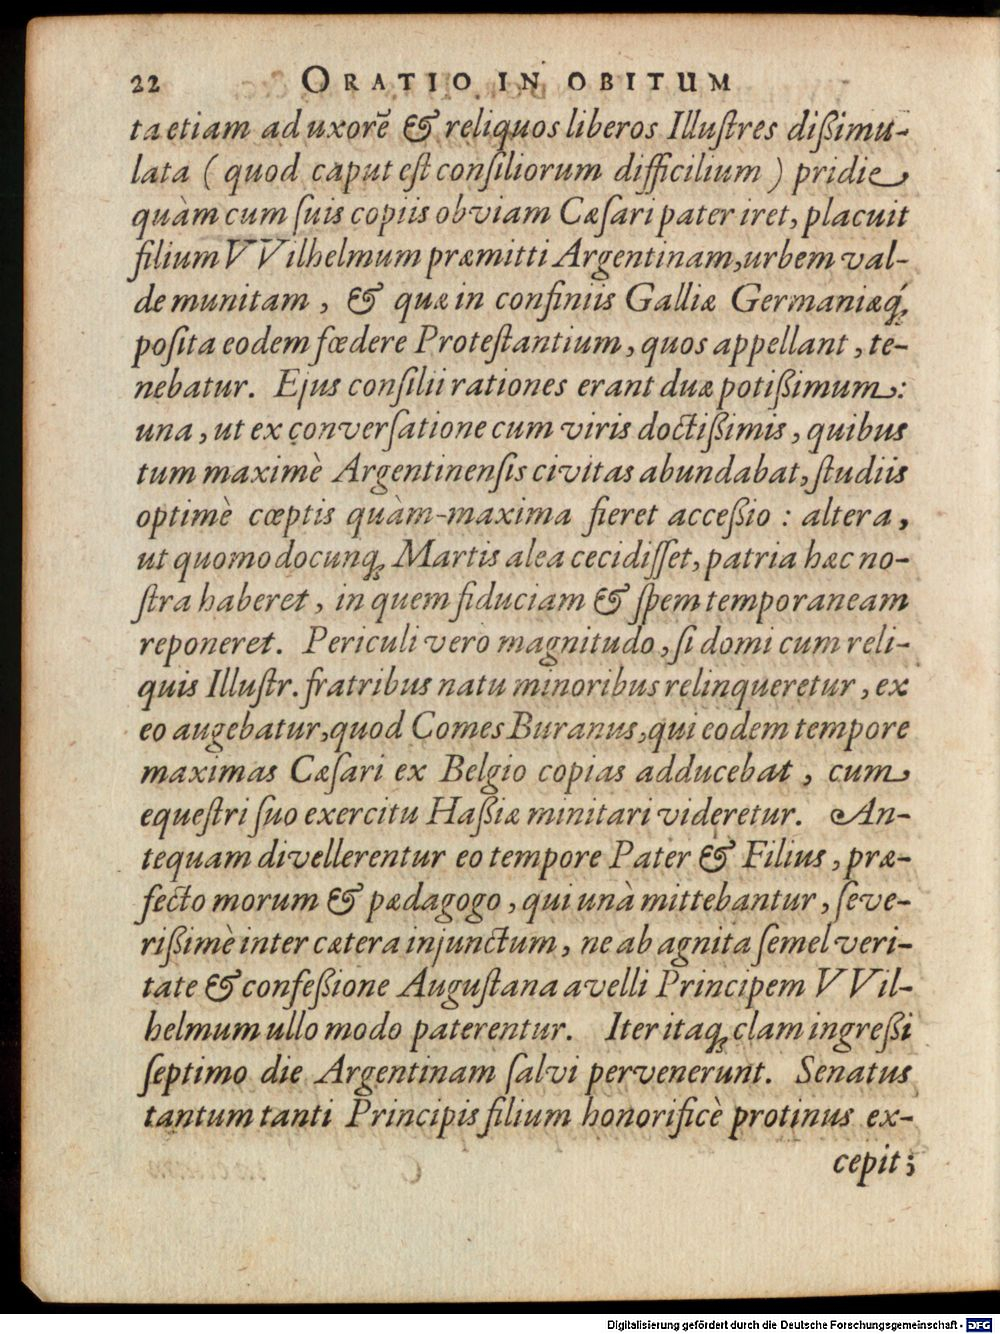 22 ORATIO IN OBITUM
ta etiam ad uxorē & reliquos liberos Illuſtres dißimu-
lata ( quod caput eſt conſiliorum difficilium ) pridie
quàm cum ſuis copiis obviam Cæſari pater iret, placuit
filium VVilhelmum præmitti Argentinam, urbem val-
de munitam, & quæ in confiniis Galliæ Germaniæq́;
poſita eodem fœdere Proteſtantium, quos appellant, te-
nebatur. Ejus conſilii rationes erant duæ potißimum:
una, ut ex converſatione cum viris doctißimis, quibus
tum maximè Argentinenſis civitas abundabat, ſtudiis
optimè cœptis quàm-maxima fieret acceßio : altera,
ut quomodocunq; Martis alea cecidiſſet, patria hæc no-
ſtra haberet, in quem fiduciam & ſpem temporaneam
reponeret. Periculi verò magnitudo, ſi domi cum reli-
quis Illuſtr. fratribus natu minoribus relinqueretur, ex
eo augebatur, quod Comes Buranus, qui eodem tempore
maximas Cæſari ex Belgio copias adducebat, cum
equeſtri ſuo exercitu Haßiæ minitari videretur. An-
tequam divellerentur eo tempore Pater & Filius, præ-
fecto morum & pædagogo, qui unà mittebantur, ſeve-
rißimè inter cætera injunctum, ne ab agnita ſemel veri-
tate & confeßione Auguſtana avelli Principem VVil-
helmum ullo modo paterentur. Iter itaq; clam ingreßi
ſeptimo die Argentinam ſalvi pervenerunt. Senatus
tantum tanti Principis filium honorificè protinus ex-
cepit;
Digitalisierung gefördert durch die Deutsche Forschungsgemeinschaft - DFG